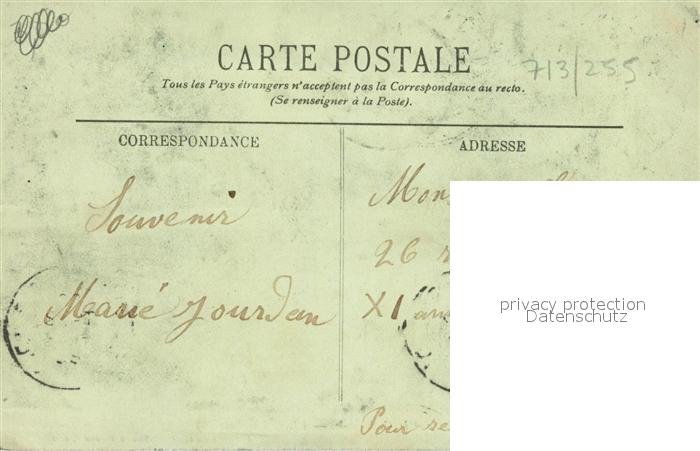 CARTE POSTALE
713/255
Tous les Pays étrangers n'acceptent pas la Correspondance au recto.
(Se renseigner à la Poste).
CORRESPONDANCE
ADRESSE
Souvenir
Marié Jourdan
26
X1
Pour
privacy protection
Datenschutz